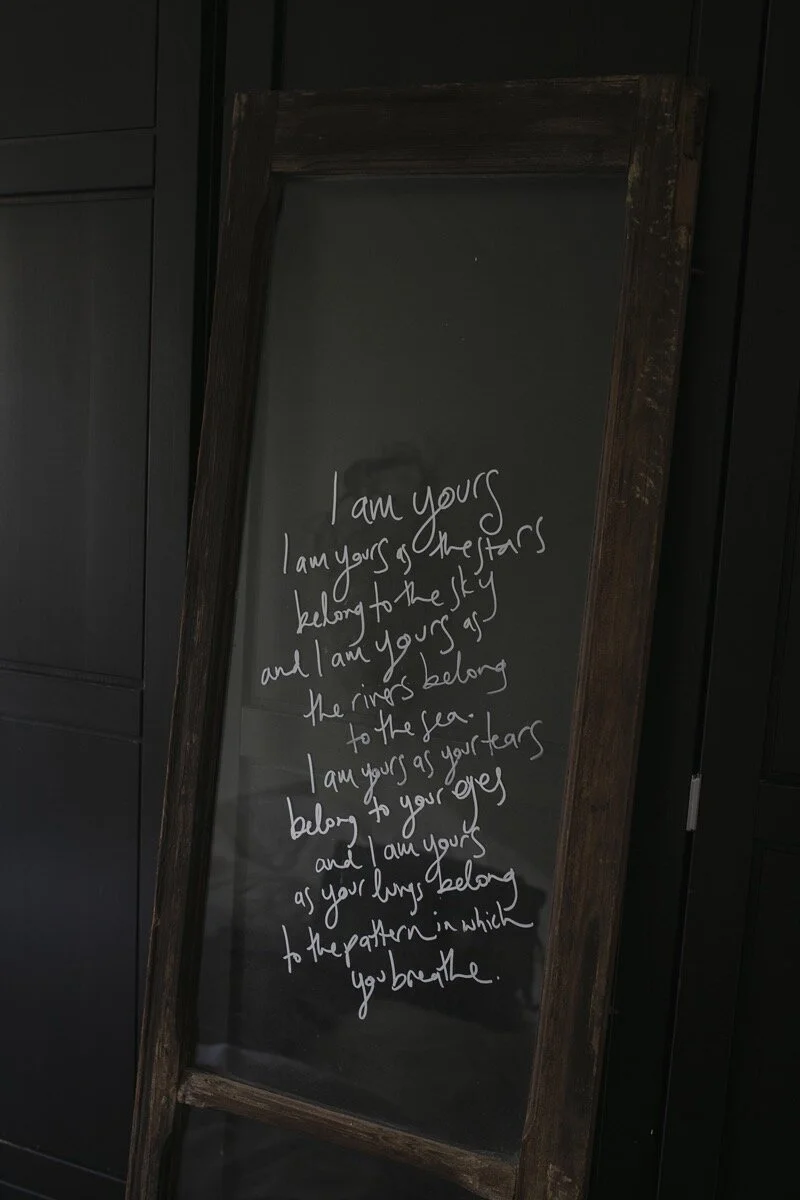 I am yours
I am yours as the stars
belong to the sky
and I am yours as
the rivers belong
to the sea.
I am yours as your tears
belong to your eyes
and I am yours
as your lungs belong
to the pattern in which
you breathe.